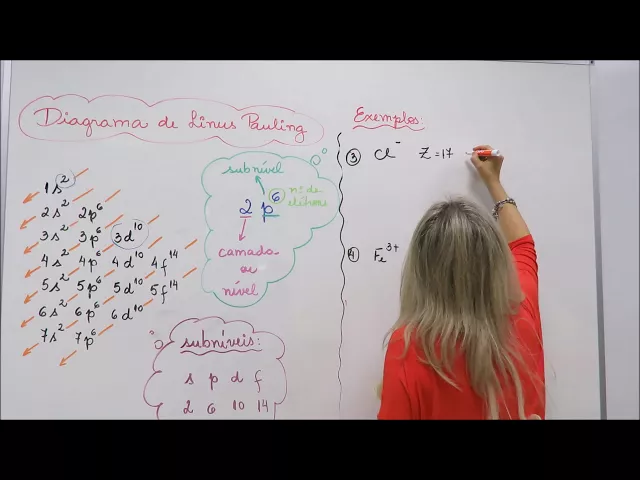 Diagrama de Linus Pauling
1s²
2s² 2p⁶
3s² 3p⁶ 3d¹⁰
4s² 4p⁶ 4d¹⁰ 4f¹⁴
5s² 5p⁶ 5d¹⁰ 5f¹⁴
6s² 6p⁶ 6d¹⁰
7s² 7p⁶
subnível
2 p⁶
nº de
elétrons
camada
ou
nível
subníveis:
s p d f
2 6 10 14
Exemplos:
3 Cl⁻ Z=17
4 Fe³⁺